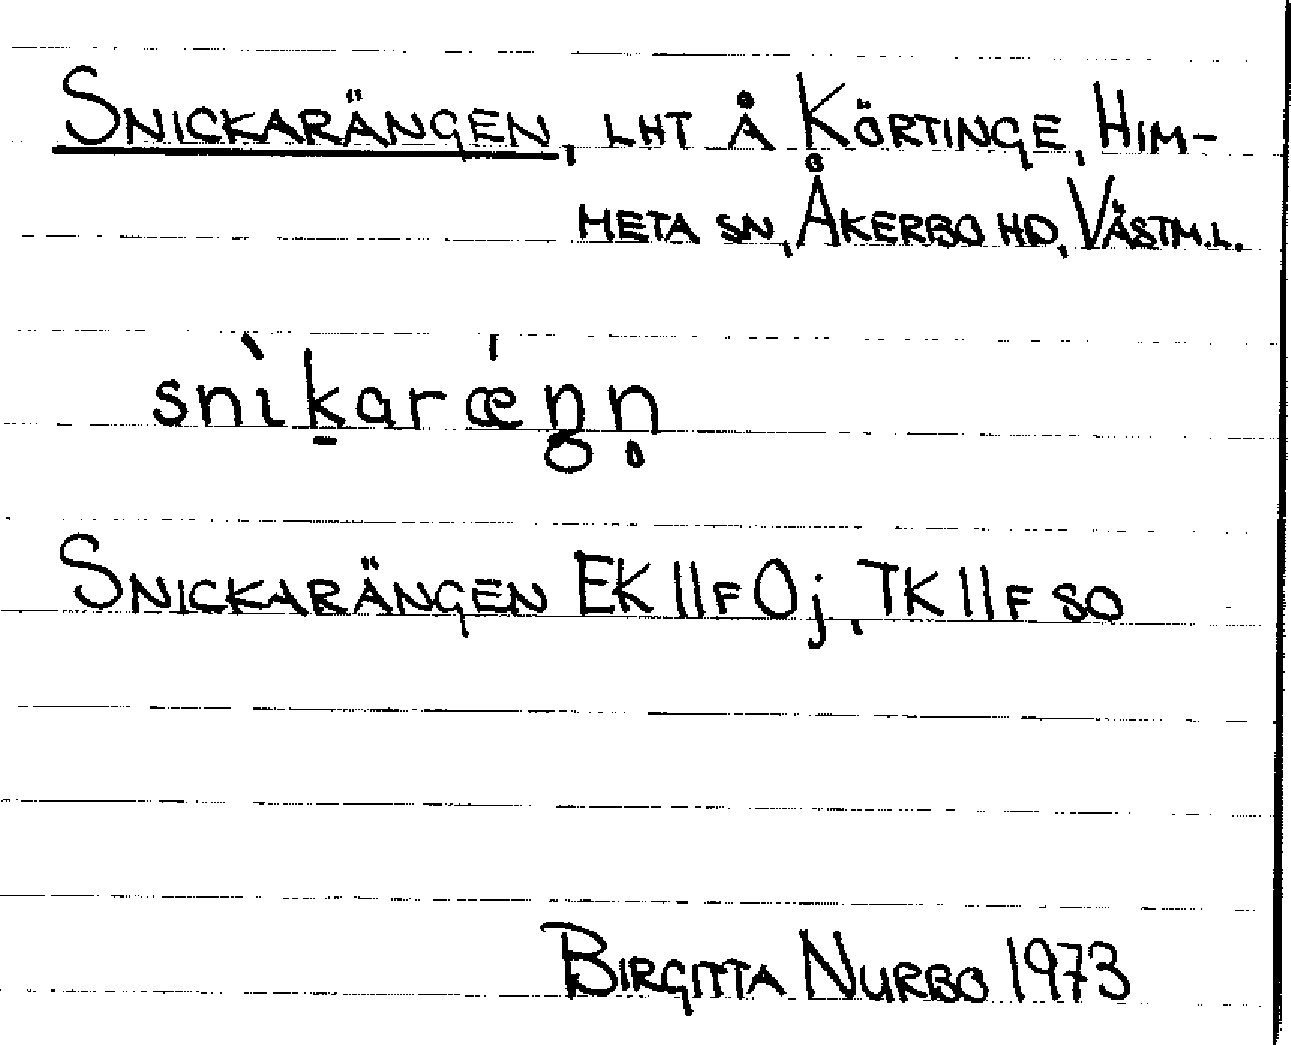 SNICKARÄNGEN, LHT Å KÖRTINGE, HIM-
META SN, ÅKERBO HD, VÄSTM.L.
snìk̠arǽŋn̥
SNICKARÄNGEN EK 11F 0j, TK 11F SO
BIRGITTA NURBO 1973